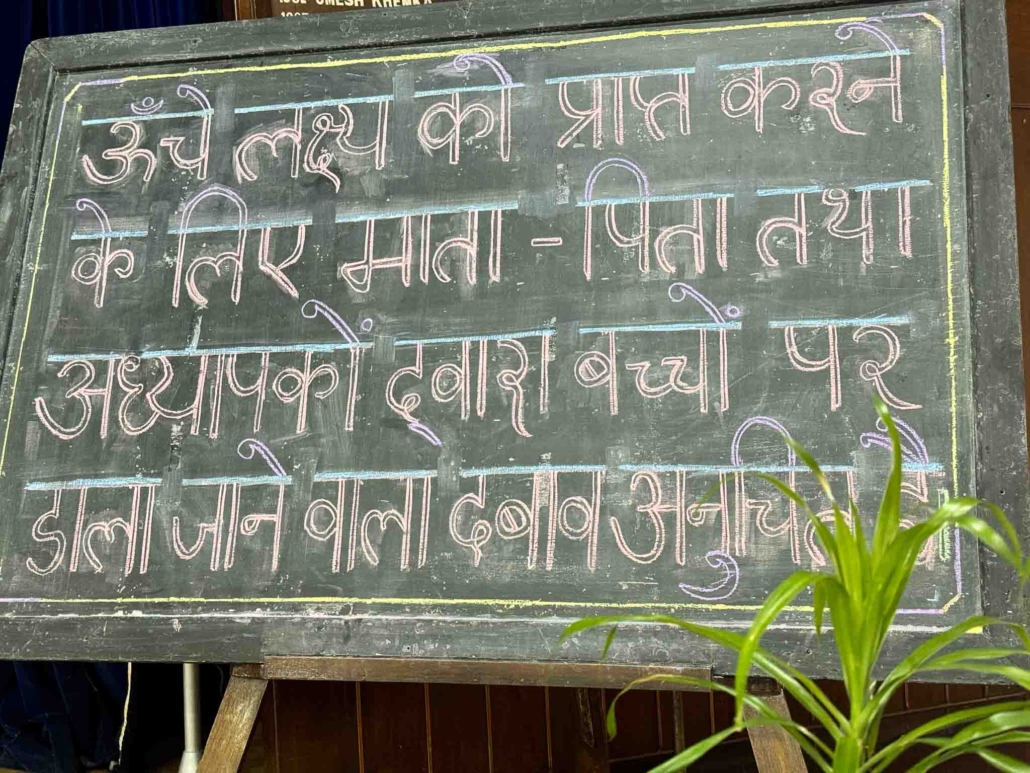 UMESH KHEMKA
ऊँचे लक्ष्य को प्राप्त करने
के लिए माता - पिता तथा
अध्यापकों द्‌वारा बच्चों पर
डाला जाने वाला दबाव अनुचित है